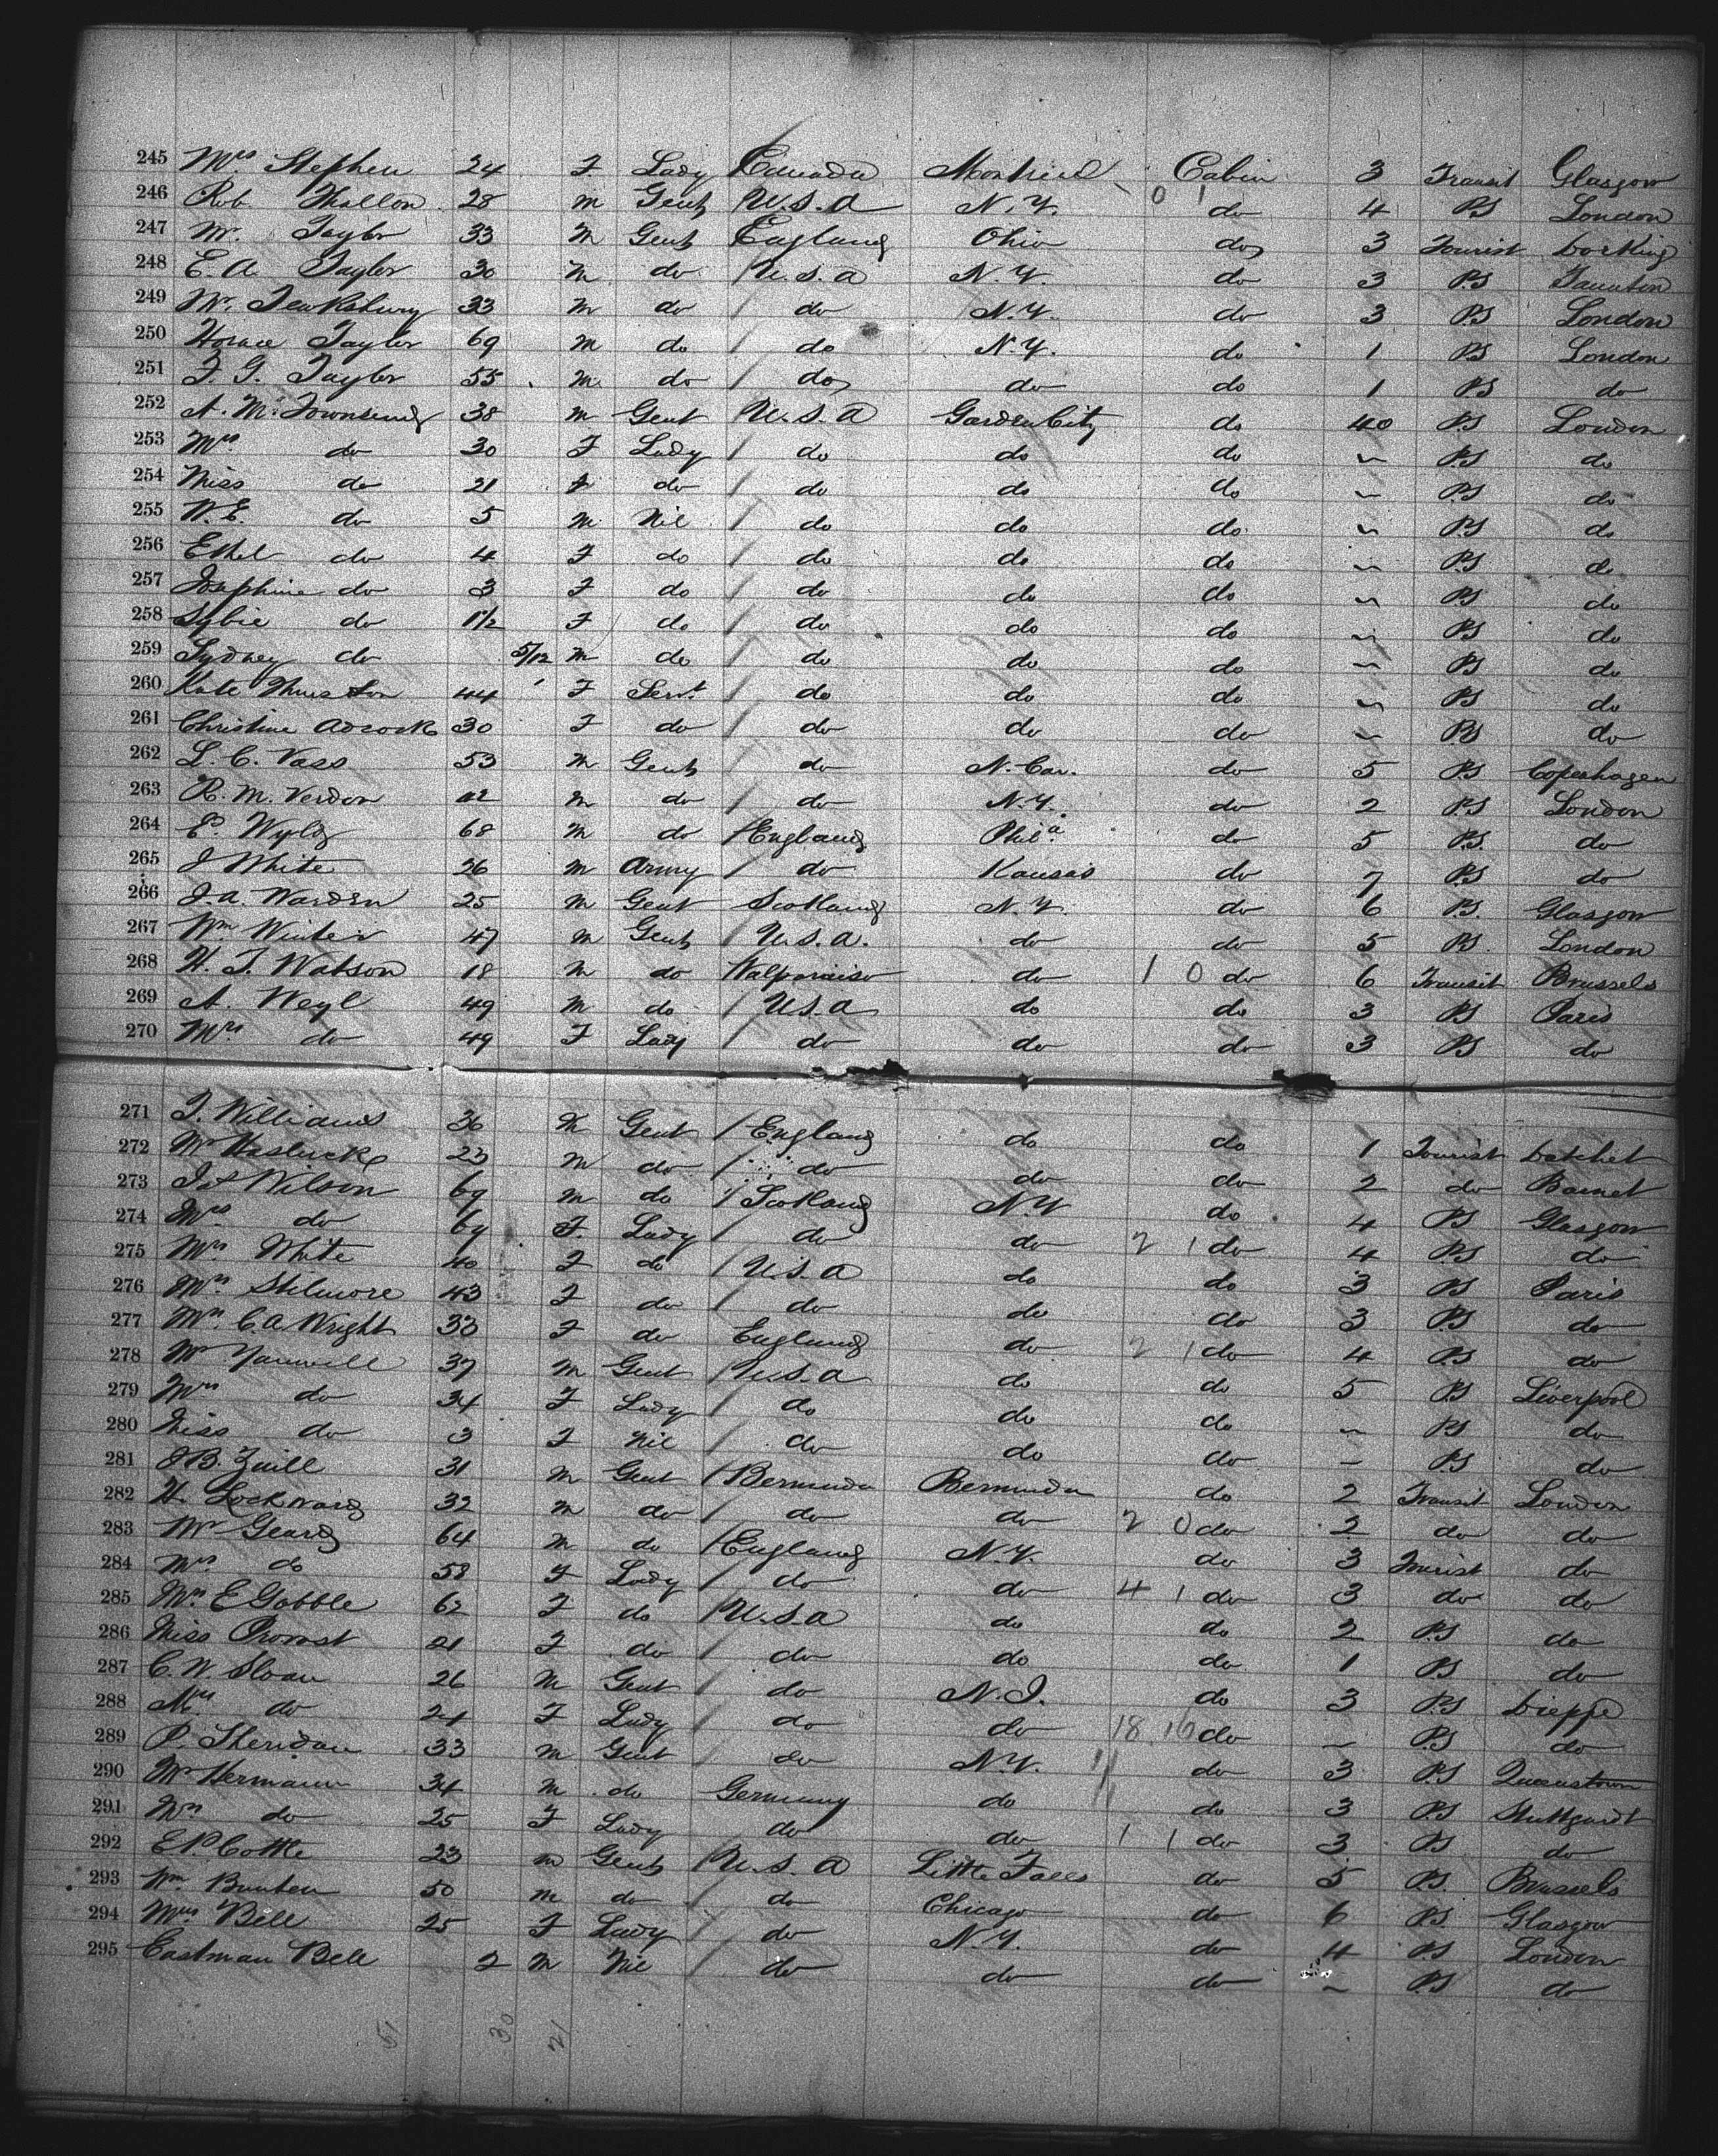 245 Mrs Stephen 24 F Lady Canada Montreal Cabin 3 Transit Glasgow
246 Rob Mallon 28 M Gent U.S.A N.Y. 0 1 do 4 PS London
247 Mr. Taylor 33 M Gent England Ohio do 3 Tourist Dorking
248 E. A Taylor 30 M do U.S.A N.Y. do 3 PS Taunton
249 Mr. Tewksbury 33 M do do N.Y. do 3 PS London
250 Horace Taylor 69 M do do N.Y. do 1 PS London
251 F. G. Taylor 55 M do do do do 1 PS do
252 A. M. Townsend 38 M Gent U.S.A Garden City do 40 PS London
253 Mrs do 30 F Lady do do do " PS do
254 Miss do 21 F do do do do " PS do
255 W. E. do 5 M Nil do do do " PS do
256 Ethel do 4 F do do do do " PS do
257 Josephine do 3 F do do do do " PS do
258 Sybie do 1 1/2 F do do do do " PS do
259 Sydney do 5/12 M do do do do " PS do
260 Kate Thurston 44 F Servt do do do " PS do
261 Christine Adcock 30 F do do do do " PS do
262 L. C. Vass 53 M Gent do N. Car. do 5 PS Copenhagen
263 R. M. Verdon M do do N.Y. do 2 PS London
264 E. Wyld 68 M do England Phila do 5 PS do
265 J White 26 M Army do Kansas do 7 PS do
266 J. A. Warden 25 M Gent Scotland N.Y. do 6 PS. Glasgow
267 Wm Winter 47 M Gent U.S.A. do do 5 PS London
268 H. T. Watson 18 M do Valparaiso do 1 0 do 6 Transit Brussels
269 A. Weyl 49 M do U.S.A do do 3 PS Paris
270 Mrs do 49 F Lady do do do 3 PS do
271 J. Williams 36 M Gent England do do 1 Tourist Datchet
272 Mr Hasluck 23 M do do do do 2 do Barnet
273 Jas Wilson 69 M do Scotland NY do 4 PS Glasgow
274 Mrs do 64 F. Lady do do 2 1 do 4 PS do
275 Mrs White 40 F do U.S.A do do 3 PS Paris
276 Mrs 43 F do do do do 3 PS do
277 Mrs C. A Wright 33 F do England do 2 1 do 4 PS do
278 Mr 37 M Gent U.S.A do do 5 PS Liverpool
279 Mrs do 34 F Lady do do do " PS do
280 Miss do 3 F Nil do do do " PS do
281 J B. Zuill 31 M Gent Bermuda Bermuda do 2 Transit London
282 H. Lockward 32 M do do do 2 0 do 2 do do
283 Mr Geard 64 M do England N.Y. do 3 Tourist do
284 Mrs do 58 F Lady do do 4 1 do 3 do do
285 Mrs E Gobble 62 F do U.S.A do do 2 PS do
286 Miss Provost 21 F do do do do 1 PS do
287 C. W. Sloan 26 M Gent do N.J. do 3 PS Dieppe
288 Mrs do 24 F Lady do do 18 16 do " PS do
289 P. Sheridan 33 M Gent do N.Y. do 3 PS Queenstown
290 Mr Hermann 34 M do Germany do do 3 PS Stuttgardt
291 Mrs do 25 F Lady do do 1 1 do 3 PS do
292 E P Cottle 23 M Gent U.S.A Little Falls do 5 PS. Brussels
293 Wm Bunten 50 M do do Chicago do 6 PS Glasgow
294 Mrs Bell 25 F Lady do N.Y. do 4 PS London
295 Eastman Bell 2 M Nil do do do " PS do
51 30 21